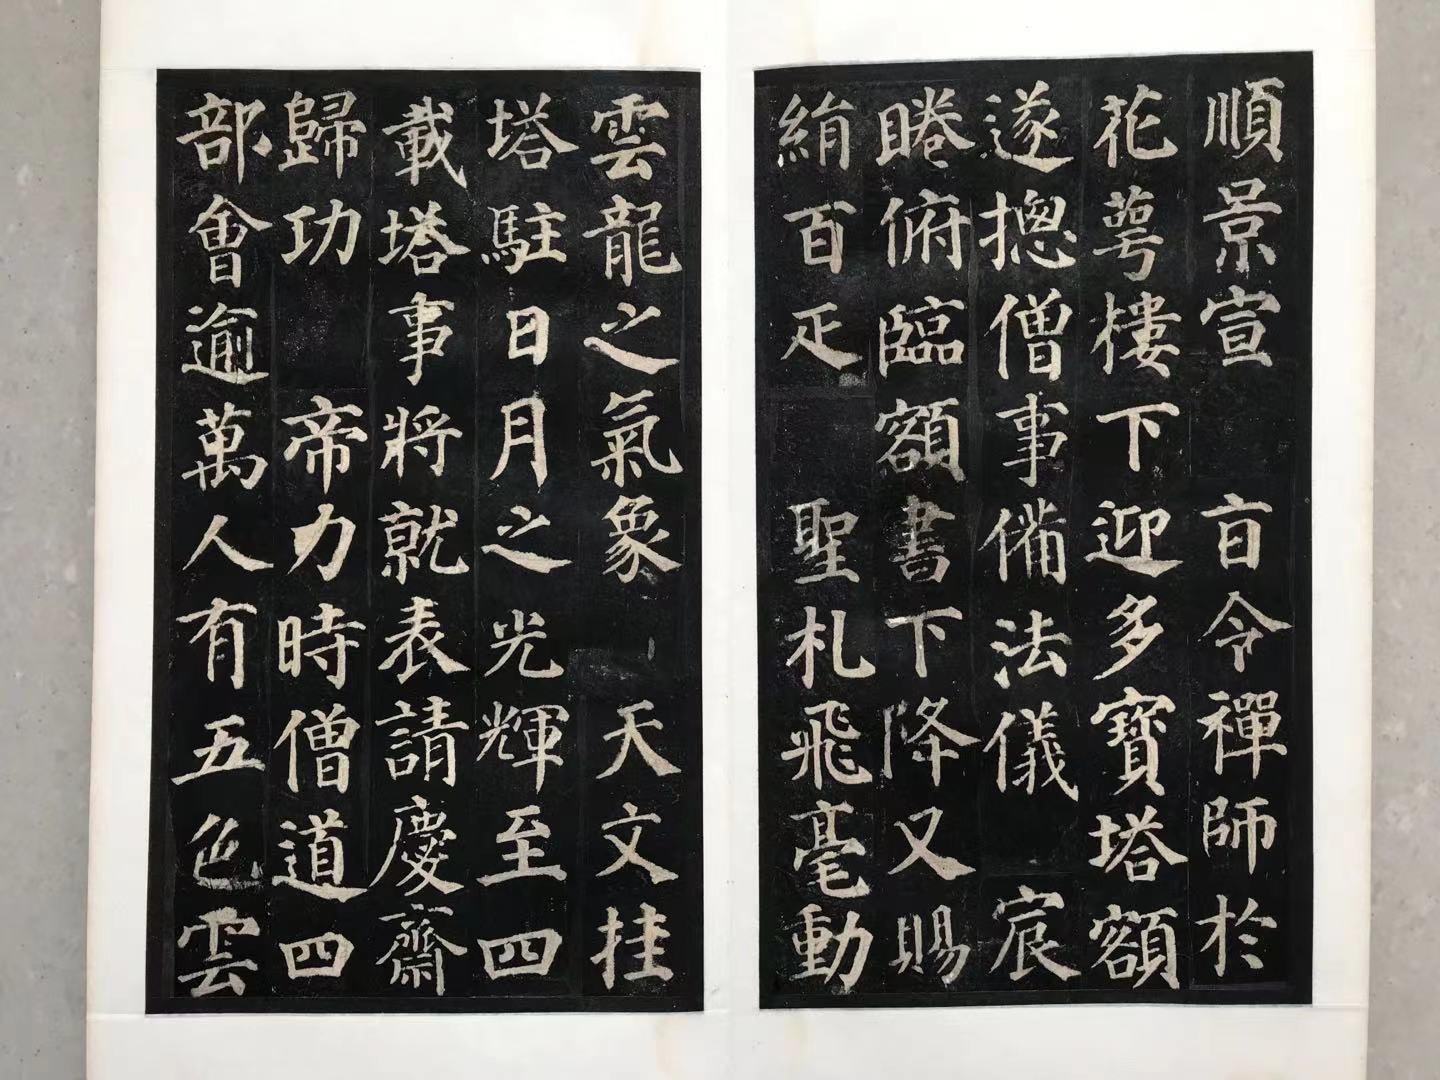 順景宣 㫖令禪師於
花萼樓下迎多寶塔額
遂摠僧事俻法儀 宸
睠俯臨額書下降又賜
絹百疋 聖札飛毫動
雲龍之氣象 天文挂
塔駐日月之光輝至四
載塔事將就表請慶齋
歸功 帝力時僧道四
部會逾萬人有五色雲